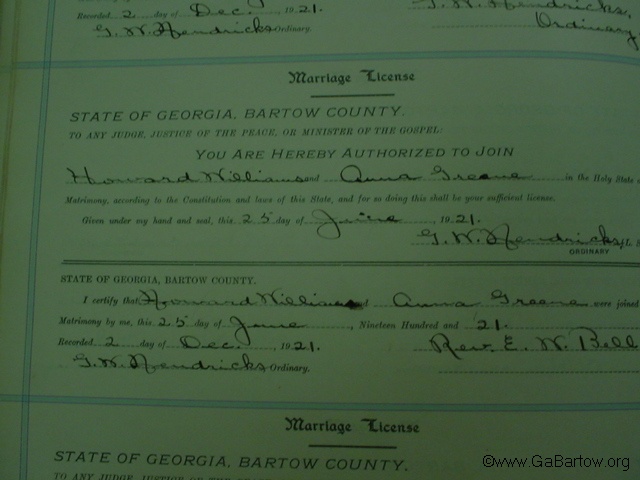 Recorded 2 day of Dec. 1921. G. W. Hendricks,
G. W. Hendricks Ordinary. Ordinary
Marriage License
STATE OF GEORGIA, BARTOW COUNTY.
TO ANY JUDGE, JUSTICE OF THE PEACE, OR MINISTER OF THE GOSPEL:
YOU ARE HEREBY AUTHORIZED TO JOIN
Howard Williams and Anna Greene in the Holy State
Matrimony, according to the Constitution and laws of this State, and for so doing this shall be your sufficient license.
Given under my hand and seal, this 25 day of June, 1921.
G. W. Hendricks,
ORDINARY
STATE OF GEORGIA, BARTOW COUNTY.
I certify that Howard Williams and Anna Greene were joined
Matrimony by me, this 25 day of June, Nineteen Hundred and 21.
Recorded 2 day of Dec. 1921. Rev. E. W. Bell
G. W. Hendricks Ordinary.
Marriage License
STATE OF GEORGIA, BARTOW COUNTY.
©www.GaBartow.org